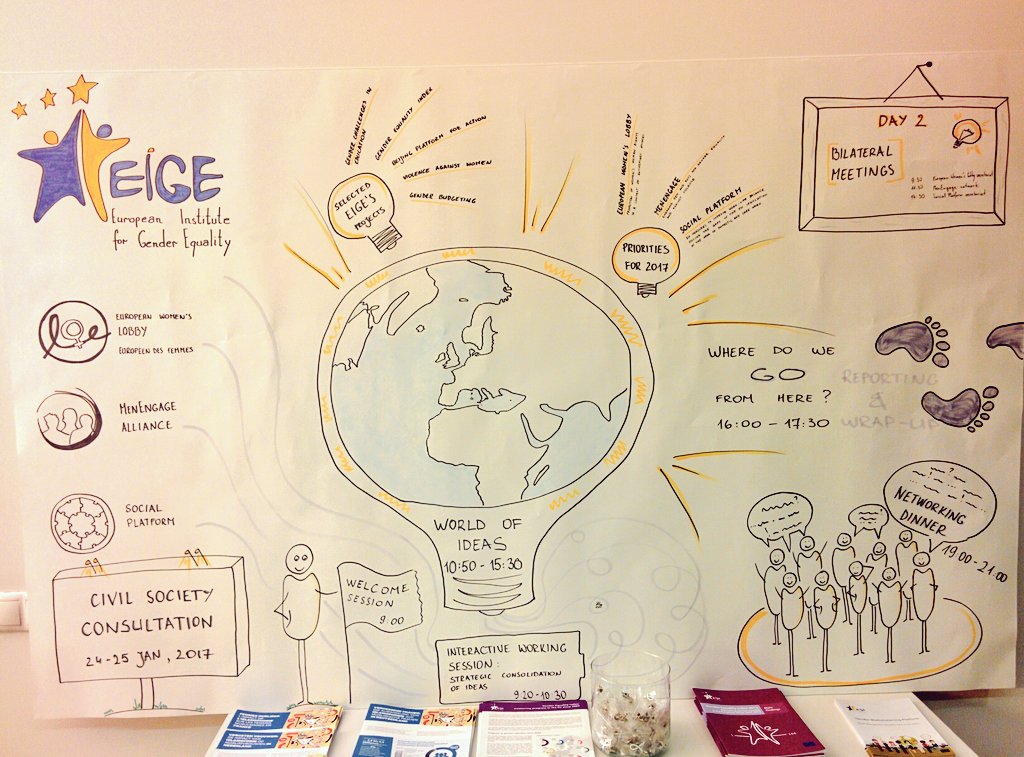 EIGE
European Institute
for Gender Equality
GENDER CHALLENGES IN
EDUCATION
GENDER EQUALITY INDEX
BEIJING PLATFORM FOR ACTION
VIOLENCE AGAINST WOMEN
GENDER BUDGETING
SELECTED
EIGE'S
PROJECTS
EUROPEAN WOMEN'S LOBBY
MENENGAGE
SOCIAL PLATFORM
PRIORITIES
FOR 2017
DAY 2
BILATERAL
MEETINGS
EUROPEAN WOMEN'S
LOBBY
EUROPEEN DES FEMMES
MENENGAGE
ALLIANCE
SOCIAL
PLATFORM
WHERE DO WE
GO
FROM HERE?
16:00 - 17:30
REPORTING
&
WRAP-UP
WORLD OF
IDEAS
10:50 - 15:30
NETWORKING
DINNER
19:00 - 21:00
CIVIL SOCIETY
CONSULTATION
24-25 JAN, 2017
WELCOME
SESSION
9:00
INTERACTIVE WORKING
SESSION:
STRATEGIC CONSOLIDATION
OF IDEAS
9:20 - 10:30